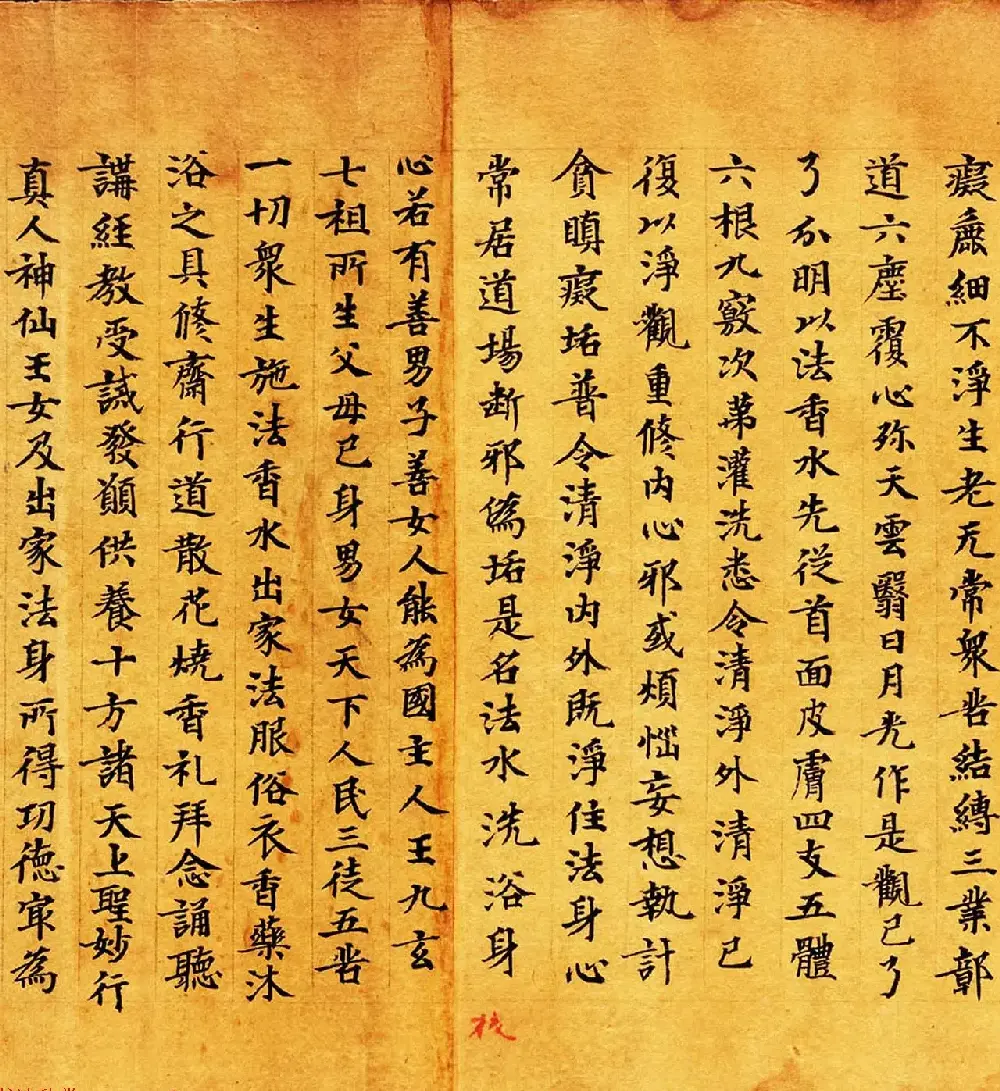 癡麁細不淨生老无常衆苦結縛三業鄣
道六塵覆心弥天雲翳日月光作是觀已了
了分明以法香水先從首面皮膚四支五體
六根九竅次第灌洗悉令清淨外清淨已
復以淨觀重修内心邪或煩惱妄想執計
貪瞋癡垢普令清淨内外既淨住法身心
常居道場斷邪偽垢是名法水洗浴身
心若有善男子善女人能為國主人王九玄
七祖所生父母己身男女天下人民三徒五苦
一切衆生施法香水出家法服俗衣香藥沐
浴之具修齋行道散花燒香礼拜念誦聽
講經教受誡發願供養十方諸天上聖妙行
真人神仙王女及出家法身所得功德㝡為
校